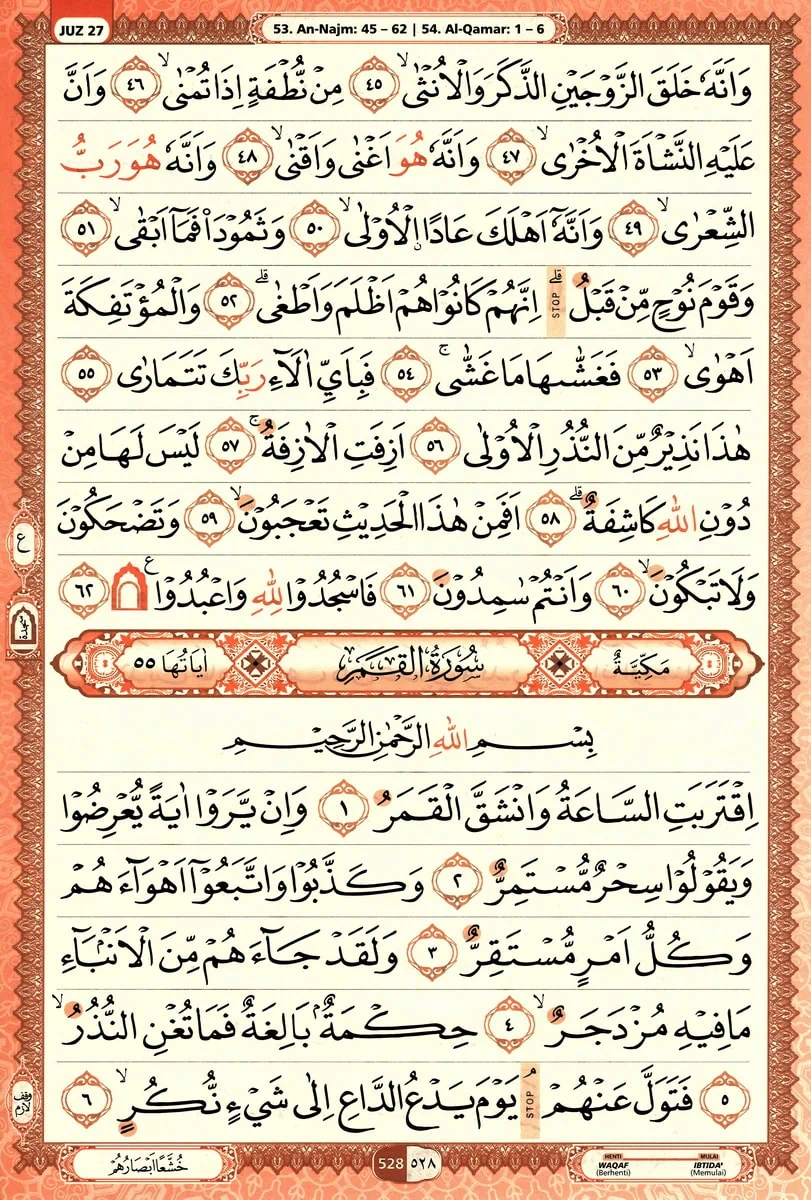 JUZ 27
53. An-Najm: 45 – 62 | 54. Al-Qamar: 1 – 6
وَاَنَّهٗ خَلَقَ الزَّوْجَيْنِ الذَّكَرَ وَالْاُنْثٰىۙ ٤٥ مِنْ نُّطْفَةٍ اِذَا تُمْنٰىۙ ٤٦ وَاَنَّ
عَلَيْهِ النَّشْاَةَ الْاُخْرٰىۙ ٤٧ وَاَنَّهٗ هُوَ اَغْنٰى وَاَقْنٰىۙ ٤٨ وَاَنَّهٗ هُوَ رَبُّ
الشِّعْرٰىۙ ٤٩ وَاَنَّهٗٓ اَهْلَكَ عَادًا ۨالْاُوْلٰىۙ ٥٠ وَثَمُوْدَا۟ فَمَآ اَبْقٰىۙ ٥١
وَقَوْمَ نُوْحٍ مِّنْ قَبْلُۗ STOP اِنَّهُمْ كَانُوْا هُمْ اَظْلَمَ وَاَطْغٰىۗ ٥٢ وَالْمُؤْتَفِكَةَ
اَهْوٰىۙ ٥٣ فَغَشّٰىهَا مَا غَشّٰىۚ ٥٤ فَبِاَيِّ اٰلَاۤءِ رَبِّكَ تَتَمَارٰى ٥٥
هٰذَا نَذِيْرٌ مِّنَ النُّذُرِ الْاُوْلٰى ٥٦ اَزِفَتِ الْاٰزِفَةُۚ ٥٧ لَيْسَ لَهَا مِنْ
دُوْنِ اللّٰهِ كَاشِفَةٌۗ ٥٨ اَفَمِنْ هٰذَا الْحَدِيْثِ تَعْجَبُوْنَۙ ٥٩ وَتَضْحَكُوْنَ
وَلَا تَبْكُوْنَۙ ٦٠ وَاَنْتُمْ سٰمِدُوْنَ ٦١ فَاسْجُدُوْا لِلّٰهِ وَاعْبُدُوْا ࣖ ۩ ٦٢
ع
سجدة
مَكِّيَّةٌ سُوْرَةُ الْقَمَرِ اٰيَاتُهَا ٥٥
بِسْمِ اللّٰهِ الرَّحْمٰنِ الرَّحِيْمِ
اِقْتَرَبَتِ السَّاعَةُ وَانْشَقَّ الْقَمَرُ ١ وَاِنْ يَّرَوْا اٰيَةً يُّعْرِضُوْا
وَيَقُوْلُوْا سِحْرٌ مُّسْتَمِرٌّ ٢ وَكَذَّبُوْا وَاتَّبَعُوْٓا اَهْوَاۤءَهُمْ
وَكُلُّ اَمْرٍ مُّسْتَقِرٌّ ٣ وَلَقَدْ جَاۤءَهُمْ مِّنَ الْاَنْۢبَاۤءِ
مَا فِيْهِ مُزْدَجَرٌۙ ٤ حِكْمَةٌ ۢ بَالِغَةٌ فَمَا تُغْنِ النُّذُرُۙ
٥ فَتَوَلَّ عَنْهُمْ ۘ STOP يَوْمَ يَدْعُ الدَّاعِ اِلٰى شَيْءٍ نُّكُرٍۙ ٦
وقف لازم
خُشَّعًا اَبْصَارُهُمْ
528 ٥٢٨
HENTI MULAI
WAQAF IBTIDA'
(Berhenti) (Memulai)